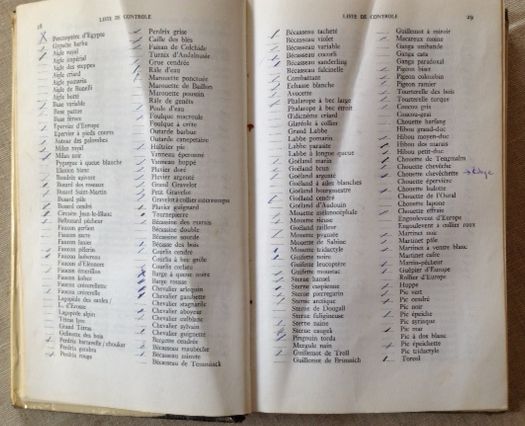 28
LISTE DE CONTROLE
Percnoptère d'Egypte
Gypaète barbu
Aigle royal
Aigle impérial
Aigle des steppes
Aigle criard
Aigle pomarin
Aigle de Bonelli
Aigle botté
Buse variable
Buse pattue
Buse féroce
Epervier d'Europe
Epervier à pieds courts
Autour des palombes
Milan royal
Milan noir
Pygargue à queue blanche
Elanion blanc
Bondrée apivore
Busard des roseaux
Busard Saint-Martin
Busard pâle
Busard cendré
Circaète Jean-le-Blanc
Balbuzard pêcheur
Faucon gerfaut
Faucon sacre
Faucon lanier
Faucon pèlerin
Faucon hobereau
Faucon d'Eléonore
Faucon émerillon
Faucon kobez
Faucon crécerellette
Faucon crécerelle
Lagopède des saules /
L. d'Ecosse
Lagopède alpin
Tétras lyre
Grand Tétras
Gélinotte des bois
Perdrix bartavelle/choukar
Perdrix gambra
Perdrix rouge
Perdrix grise
Caille des blés
Faisan de Colchide
Turnix d'Andalousie
Grue cendrée
Râle d'eau
Marouette ponctuée
Marouette de Baillon
Marouette poussin
Râle de genêts
Poule d'eau
Foulque macroule
Foulque à crête
Outarde barbue
Outarde canepetière
Huîtrier pie
Vanneau éperonné
Vanneau huppé
Pluvier doré
Pluvier argenté
Grand Gravelot
Petit Gravelot
Gravelot à collier interrompu
Pluvier guignard
Tournepierre
Bécassine des marais
Bécassine double
Bécassine sourde
Bécasse des bois
Courlis cendré
Courlis à bec grêle
Courlis corlieu
Barge à queue noire
Barge rousse
Chevalier arlequin
Chevalier gambette
Chevalier stagnatile
Chevalier aboyeur
Chevalier culblanc
Chevalier sylvain
Chevalier guignette
Bargette cendrée
Bécasseau maubèche
Bécasseau minute
Bécasseau de Temminck
LISTE DE CONTROLE
29
Bécasseau tacheté
Bécasseau violet
Bécasseau variable
Bécasseau cocorli
Bécasseau sanderling
Bécasseau falcinelle
Combattant
Echasse blanche
Avocette
Phalarope à bec large
Phalarope à bec étroit
Œdicnème criard
Glaréole à collier
Grand Labbe
Labbe pomarin
Labbe parasite
Labbe à longue queue
Goéland marin
Goéland brun
Goéland argenté
Goéland à ailes blanches
Goéland bourgmestre
Goéland cendré
Goéland d'Audouin
Mouette mélanocéphale
Mouette rieuse
Goéland railleur
Mouette pygmée
Mouette de Sabine
Mouette tridactyle
Guifette noire
Guifette leucoptère
Guifette moustac
Sterne hansel
Sterne caspienne
Sterne pierregarin
Sterne arctique
Sterne de Dougall
Sterne fuligineuse
Sterne naine
Sterne caugek
Pingouin torda
Mergule nain
Guillemot de Troïl
Guillemot de Brünnich
Guillemot à miroir
Macareux moine
Ganga unibande
Ganga cata
Ganga paradoxal
Pigeon biset
Pigeon colombin
Pigeon ramier
Tourterelle des bois
Tourterelle turque
Coucou gris
Coucou-geai
Chouette harfang
Hibou grand-duc
Hibou moyen-duc
Hibou des marais
Hibou petit-duc
Chouette de Tengmalm
Chouette chevêche
Chouette chevêchette
Chouette épervière
Chouette hulotte
Chouette de l'Oural
Chouette lapone
Chouette effraie
Engoulevent d'Europe
Engoulevent à collier roux
Martinet noir
Martinet pâle
Martinet à ventre blanc
Martinet cafre
Martin-pêcheur
Guêpier d'Europe
Rollier d'Europe
Huppe
Pic vert
Pic cendré
Pic noir
Pic épeiche
Pic syriaque
Pic mar
Pic à dos blanc
Pic épeichette
Pic tridactyle
Torcol